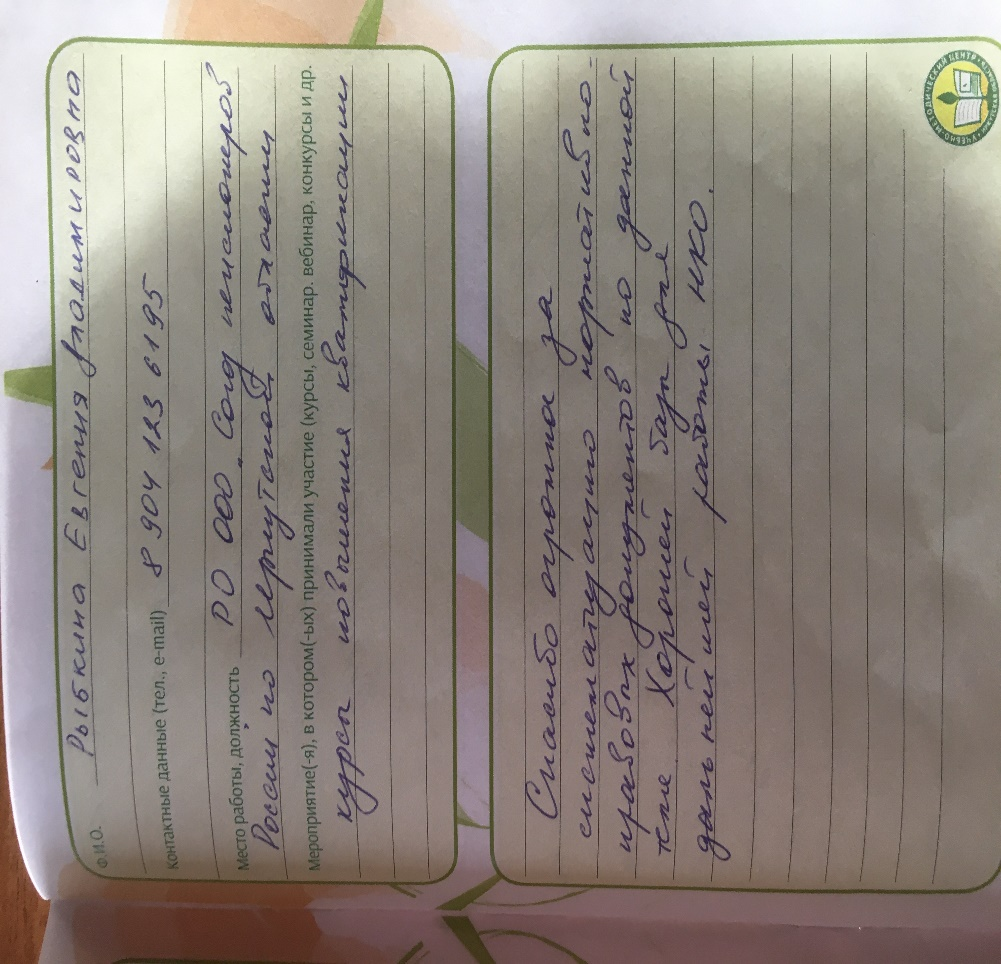 Ф.И.О. Рыбкина Евгения Владимировна
Контактные данные (тел., e-mail) 8 904 123 6195
Место работы, должность РО ООО „Союз пенсионеров
России по Иркутской области
Мероприятие(-я), в котором(-ых) принимали участие (курсы, семинар, вебинар, конкурсы и др.
курсы повышения квалификации
Спасибо огромное за
систематизацию нормативно-
правовых документов по данной
теме. Хороший базис для
дальнейшей работы НКО.
УЧЕБНО-МЕТОДИЧЕСКИЙ ЦЕНТР